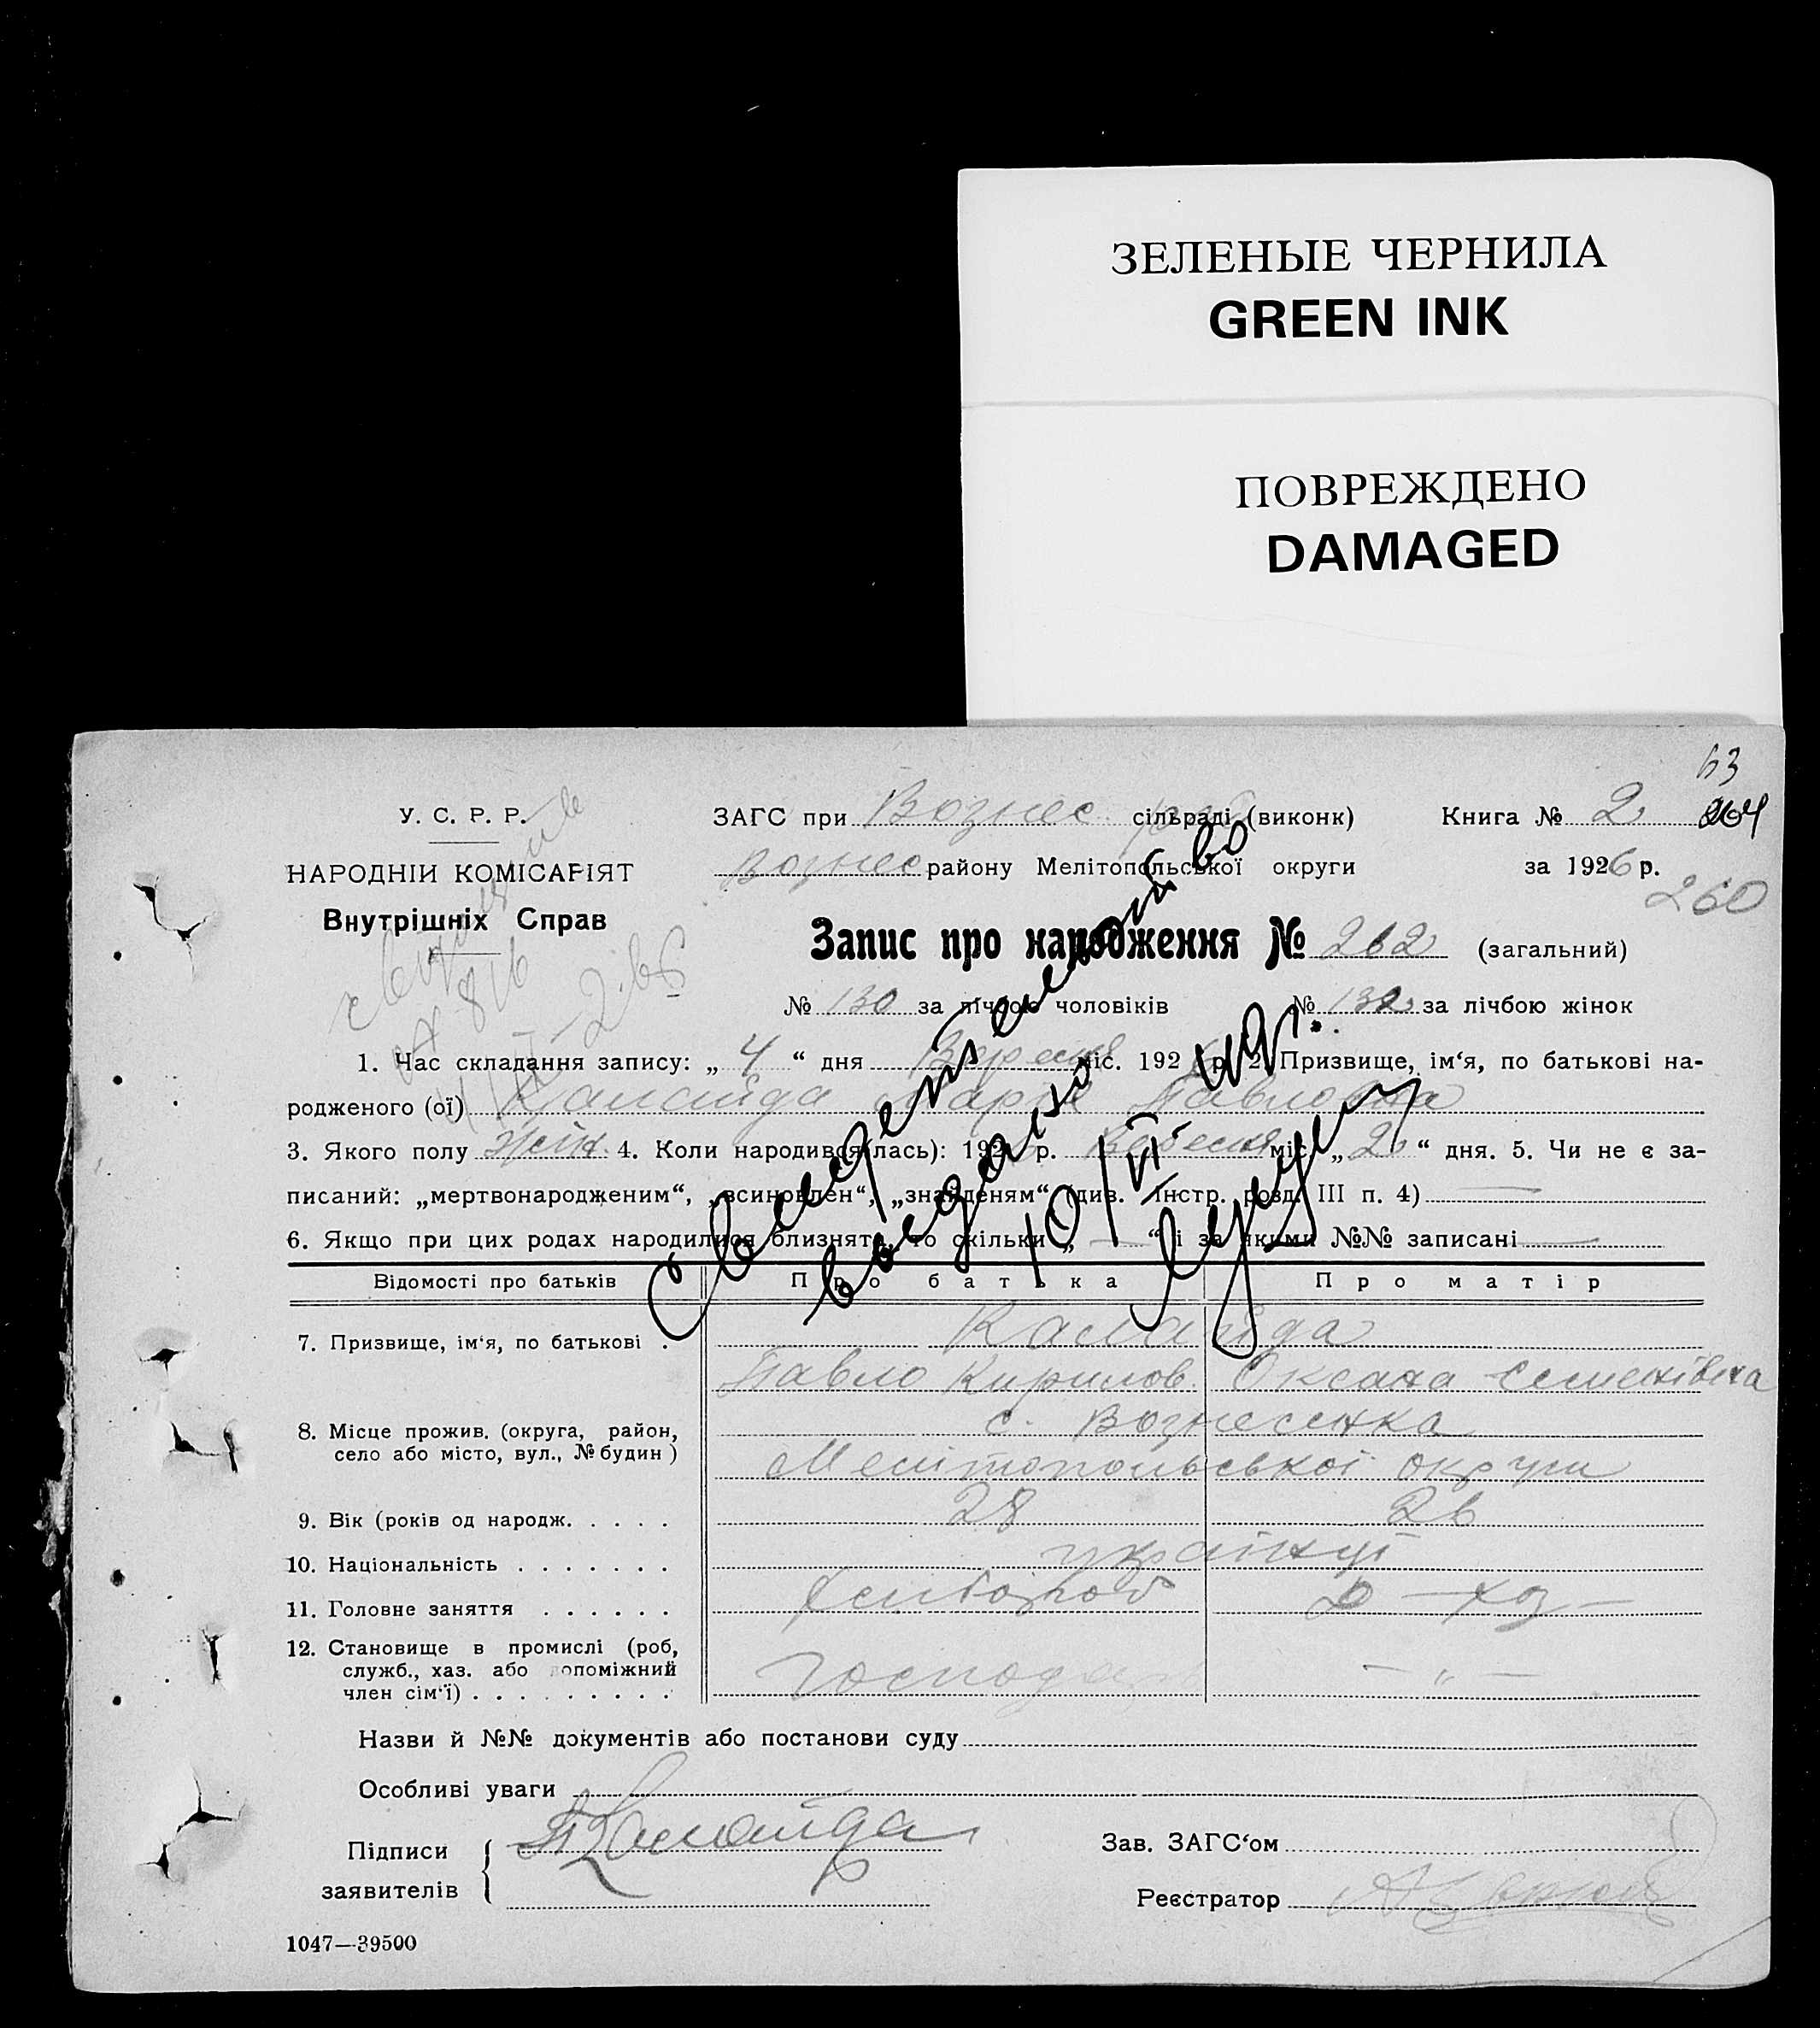 ЗЕЛЕНЫЕ ЧЕРНИЛА
GREEN INK
ПОВРЕЖДЕНО
DAMAGED
63
У. С. Р. Р.
НАРОДНІЙ КОМІСАРІЯТ
Внутрішніх Справ
ЗАГС при Вознес. сільраді (виконк) Книга № 2 264
Вознес району Мелітопольської округи за 1926 р.
260
Запис про народження № 262 (загальний)
№ 130 за лічбою чоловіків № 132 за лічбою жінок
1. Час складання запису: „ 4 “ дня Вересня міс. 192 р. 2. Призвище, ім‘я, по батькові на-
родженого (ої) Каланда Марія Павловна
3. Якого полу жін. 4. Коли народився(лась): 192 р. Вересня міс. „ 2 “ дня. 5. Чи не є за-
писаний: „мертвонародженим“, „всиновлен“, „знайденям“ (див. Інстр. розд. III п. 4) —
6. Якщо при цих родах народилися близнята, то скільки „ — “ і за якими №№ записані —
Свидетельство
выдано
10/VI
Відомості про батьків Про батька Про матір
7. Призвище, ім‘я, по батькові .
Павло Кирилов. Оксана Семенівна
8. Місце прожив. (округа, район,
село або місто, вул., № будин )
с. Вознесенка
Мелітопольської округи
9. Вік (років од народж. . . . . 28 26
10. Національність . . . . . . . українці
11. Головне заняття . . . . . . Хлібороб
12. Становище в промислі (роб,
служб., хаз. або допоміжний
член сім‘ї) . . . . . . . . . Господар — „ —
Назви й №№ документів або постанови суду
Особливі уваги
Підписи
заявителів
Зав. ЗАГС‘ом
Реєстратор
1047—39500